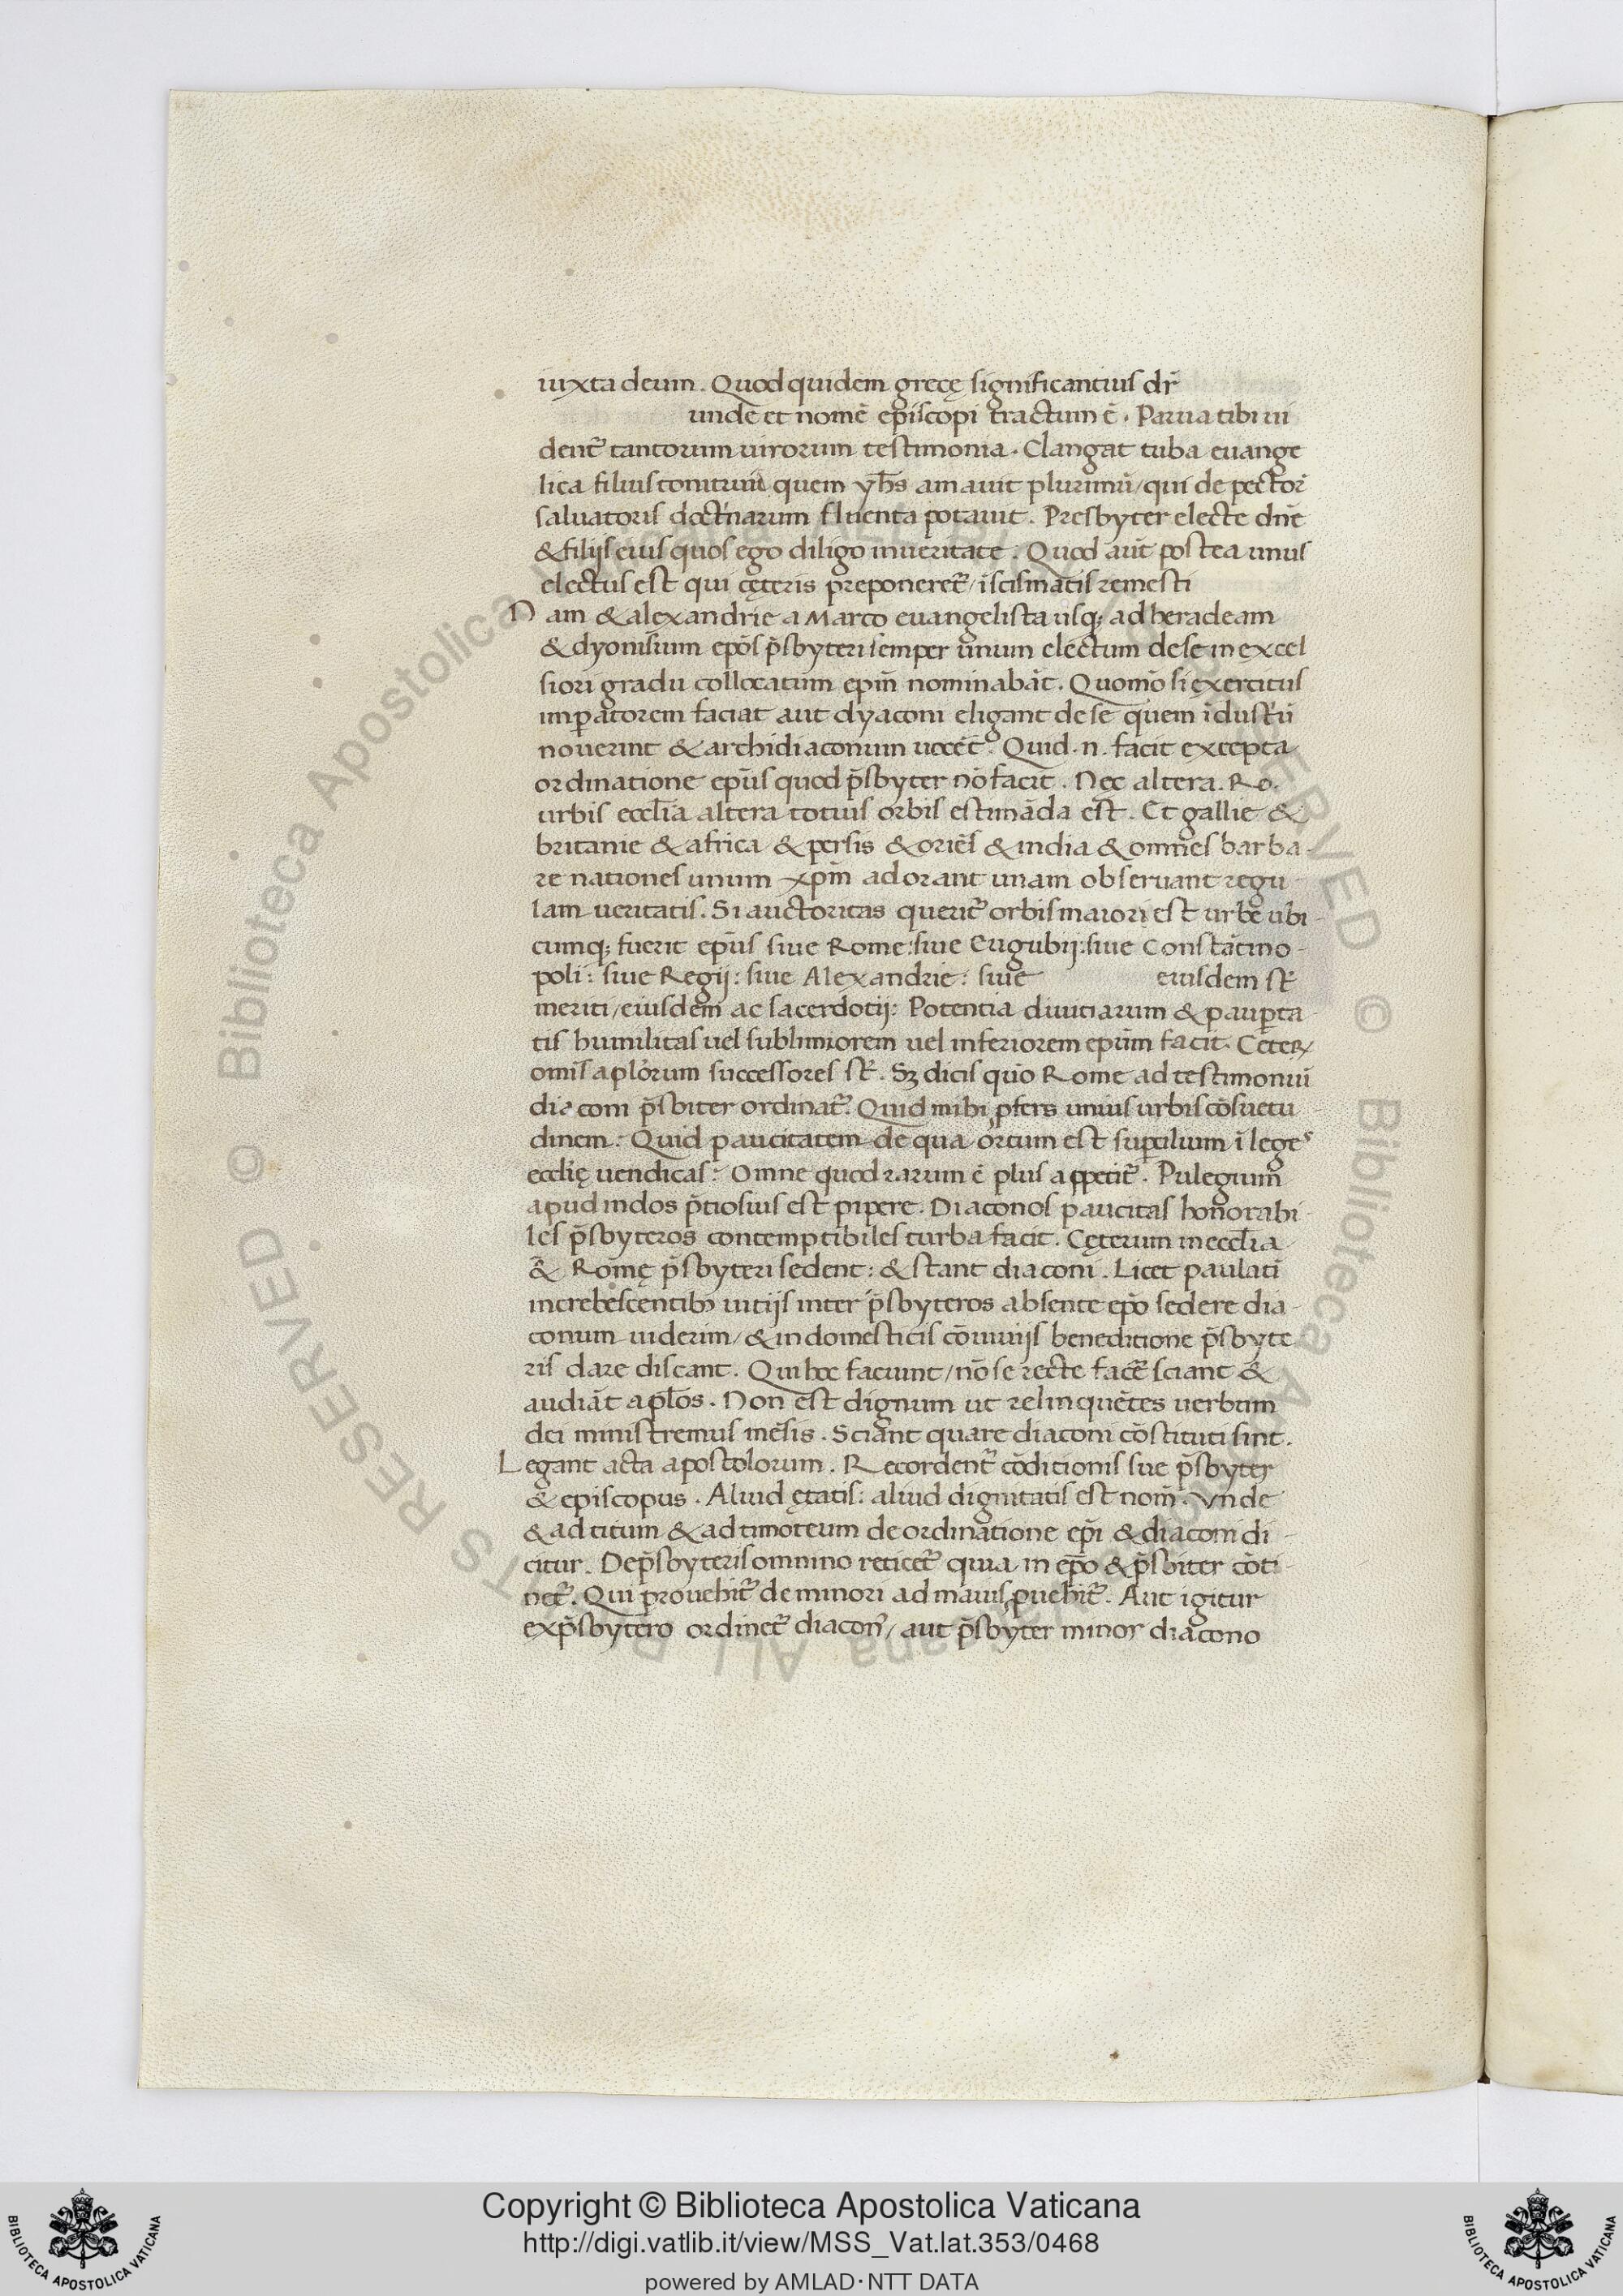 iuxta deum. Quod quidem grecę significantius dr̃
unde et nomẽ episcopi tractum ẽ. Parua tibi ui
dent᷑ tantorum uirorum testimonia. Clangat tuba euange
lica filius tonitruũ quem yħs amauit plurimũ/ qui de pector̃
saluatoris doctrinarum fluenta potauit. Presbyter electe dñe
& filijs eius quos ego diligo in ueritate. Quod aũt postea unus
electus est qui cęteris preponeret᷑/ ĩ scismatis remesti
Nam & alexandrie a Marco euangelista usq; ad heradeam
& dyonisium ep̃os p̃sbyteri semper unum electum de se in excel
siori gradu collocatum ep̃m nominabãt. Quom̃o si exercitus
imp̱atorem faciat aut dyaconi eligant de se quem ĩdustriũ
nouerint & archidiaconum uocẽt. Quid .n. facit excepta
ordinatione ep̃us quod p̃sbyter nõ facit. Nec altera. Ro.
urbis eccl̃ia altera totius orbis estimãda est. Et gallie &
britanie & africa & persis & oriẽs & india & omnes barba-
re nationes unum xp̃m adorant unam obseruant regu-
lam ueritatis. Si auctoritas querit᷑ orbis maior est urbe ubi-
cumq; fuerit ep̃us siue Rome: siue Eugubij: siue Constãtino-
poli: siue Regij: siue Alexandrie: siue eiusdem st̃
meriti/ eiusdem ac sacerdotij: Potentia diuitiarum & paup̱ta-
tis humilitas uel sublimiorem uel inferiorem ep̃um facit. Ceteꝝ
omĩs apl̃orum successores st̃. Sꝫ dicis quõ Rome ad testimoniũ
diaconi p̃sbiter ordinat᷑. Quid mihi ꝓfers unius urbis cõsuetu-
dinem: Quid paucitatem de qua ortum est sup̱cilium ĩ leges
eccl̃ię uendicas: Omne quod rarum ẽ plus appetit᷑. Pulegium
apud indos p̃tiosius est pipere. Diaconos paucitas honorabi-
les p̃sbyteros contemptibiles turba facit. Cęterum in eccl̃ia
& Romę p̃sbyteri sedent: & stant diaconi. Licet paulatĩ
increbescentibꝰ uitijs inter p̃sbyteros absente ep̃o sedere dia-
conum uiderim/ & in domesticis cõuiuijs beneditione p̃sbyte-
ris dare discant. Qui hoc faciunt/ nõ se recte facẽ sciant &
audiãt apl̃os. Non est dignum ut relinquẽtes uerbum
dei ministremus mẽsis. Sciant quare diaconi cõstituti sint.
Legant acta apostolorum. Recordent᷑ cõditionis sue p̃sbyter
& episcopus. Aliud ętatis: aliud dignitatis est nom̃. Vnde
& ad titum & ad timoteum de ordinatione ep̃i & diaconi di-
citur. De p̃sbyteris omnino reticet᷑ quia in ep̃o & p̃sbiter cõti-
net᷑. Qui prouehit᷑ de minori ad maius ꝓuehit᷑. Aut igitur
ex p̃sbytero ordinet᷑ diaconꝰ/ aut p̃sbyter minor diacono
Copyright © Biblioteca Apostolica Vaticana
http://digi.vatlib.it/view/MSS_Vat.lat.353/0468
powered by AMLAD·NTT DATA